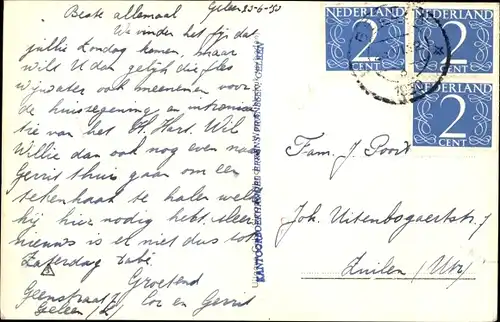 Geleen 23-6-50
Beste allemaal
We vinden het fijn dat
jullie Zondag komen, maar
wil U dan gelijk die fles
wijwater ook meenemen voor
de huiszegening en intronisa
tie van het H. Hart. Wil
Willie dan ook nog even naar
Gerrit thuis gaan om een
tekenhaak te halen welke
hij hier nodig hebt. Meer
nieuws is er niet dus tot
Zaterdag
Groetend
Geenstraat Cor en Gerrit
Geleen (L)
KANTOORBOEKHANDEL
NEDERLAND
2
CENT
NEDERLAND
2
CENT
NEDERLAND
2
CENT
1950
Fam. J. Poort
Joh. Uitenbogaertstr.
Zuilen (Utr)